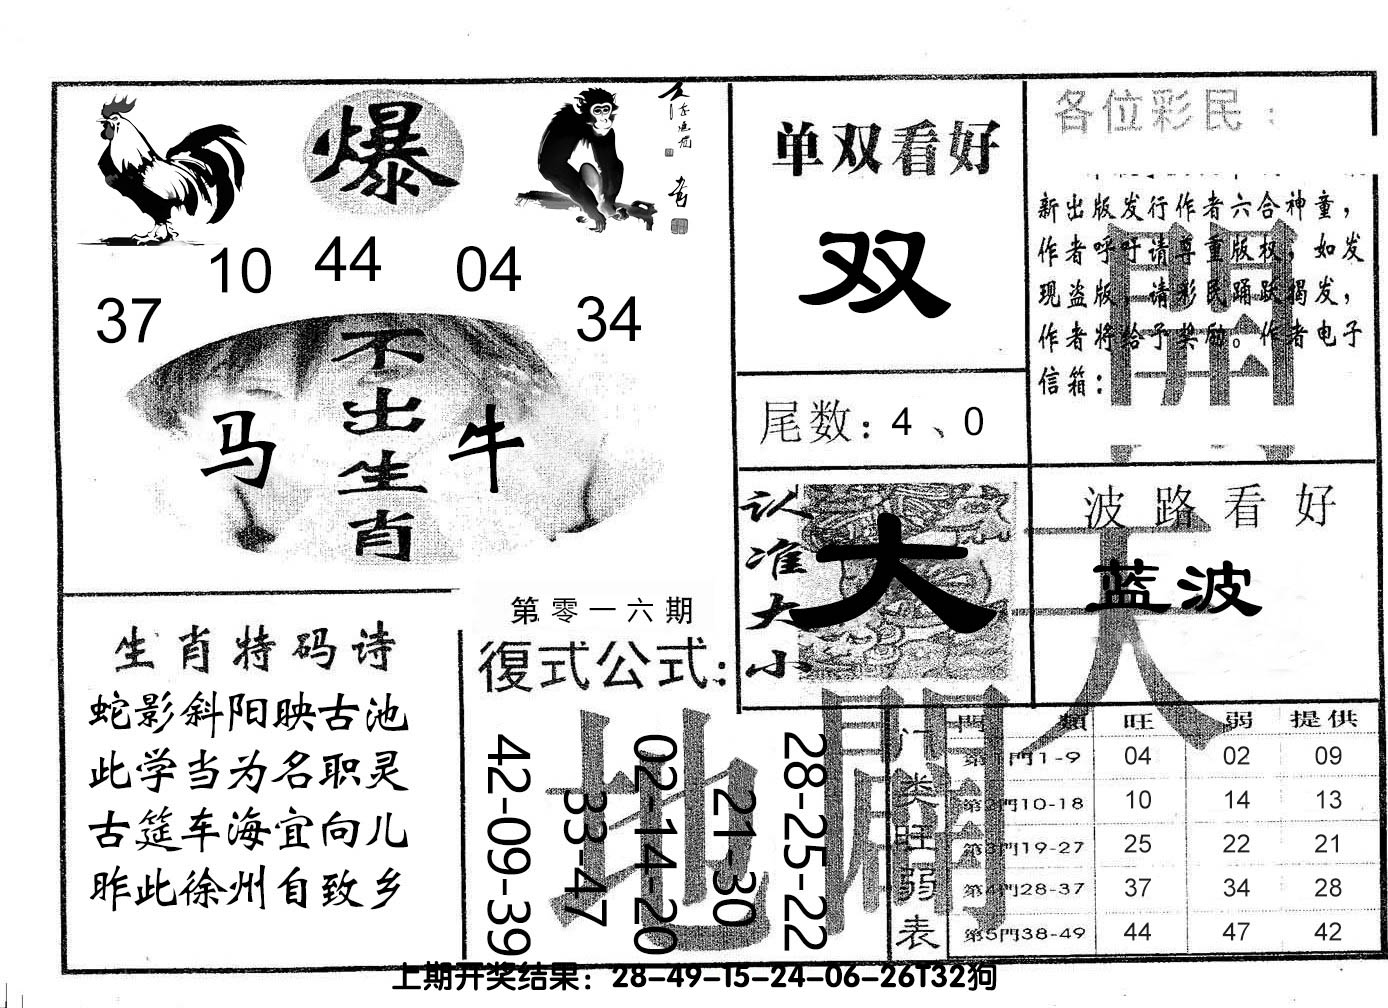 爆
10 44 04
37 34
不出生肖
马 牛
单双看好
双
尾数：4、0
各位彩民：
新出版发行作者六合神童，
作者呼吁请尊重版权，如发
现盗版，请彩民踊跃揭发，
作者将给予奖励。作者电子
信箱：
认准大小
大
波路看好
蓝波
天
開
地
開
生肖特码诗
蛇影斜阳映古池
此学当为名职灵
古筵车海宜向儿
昨此徐州自致乡
第零一六期
復式公式：
42-09-39
33-47
02-14-20
21-30
28-25-22
门类旺弱表
門類 旺 弱 提供
第1門1-9 04 02 09
第2門10-18 10 14 13
第3門19-27 25 22 21
第4門28-37 37 34 28
第5門38-49 44 47 42
上期开奖结果：28-49-15-24-06-26T32狗